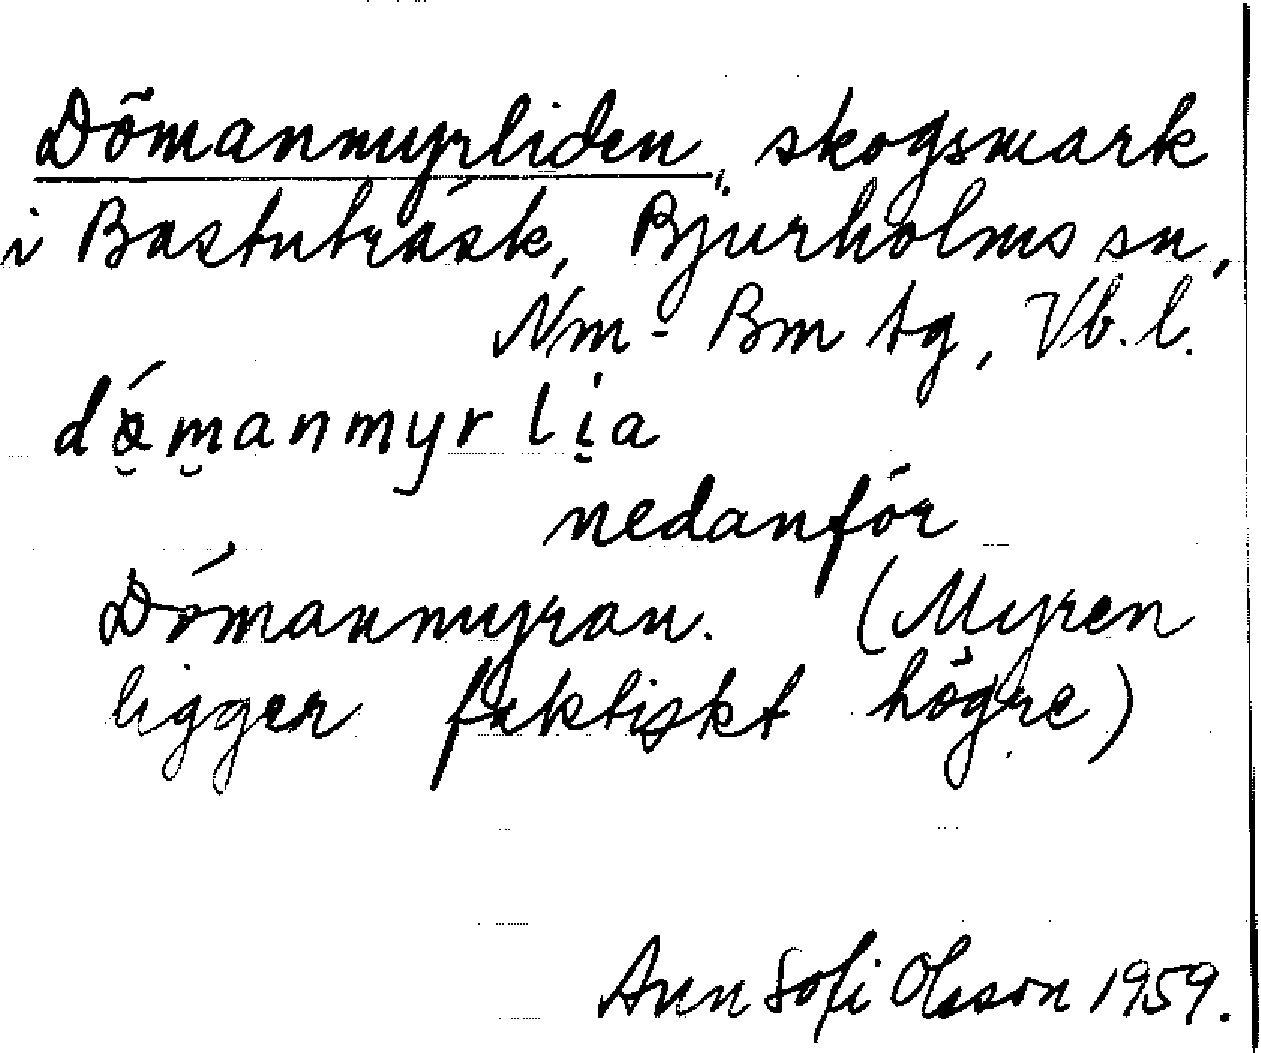 Dömanmyrliden, skogsmark
i Bastuträsk, Bjurholms sn,
Nm - Bm tg, Vb. l.
nedanför
Dömanmyran. (Myren
ligger faktiskt högre)
Ann Sofi Olsson 1959.